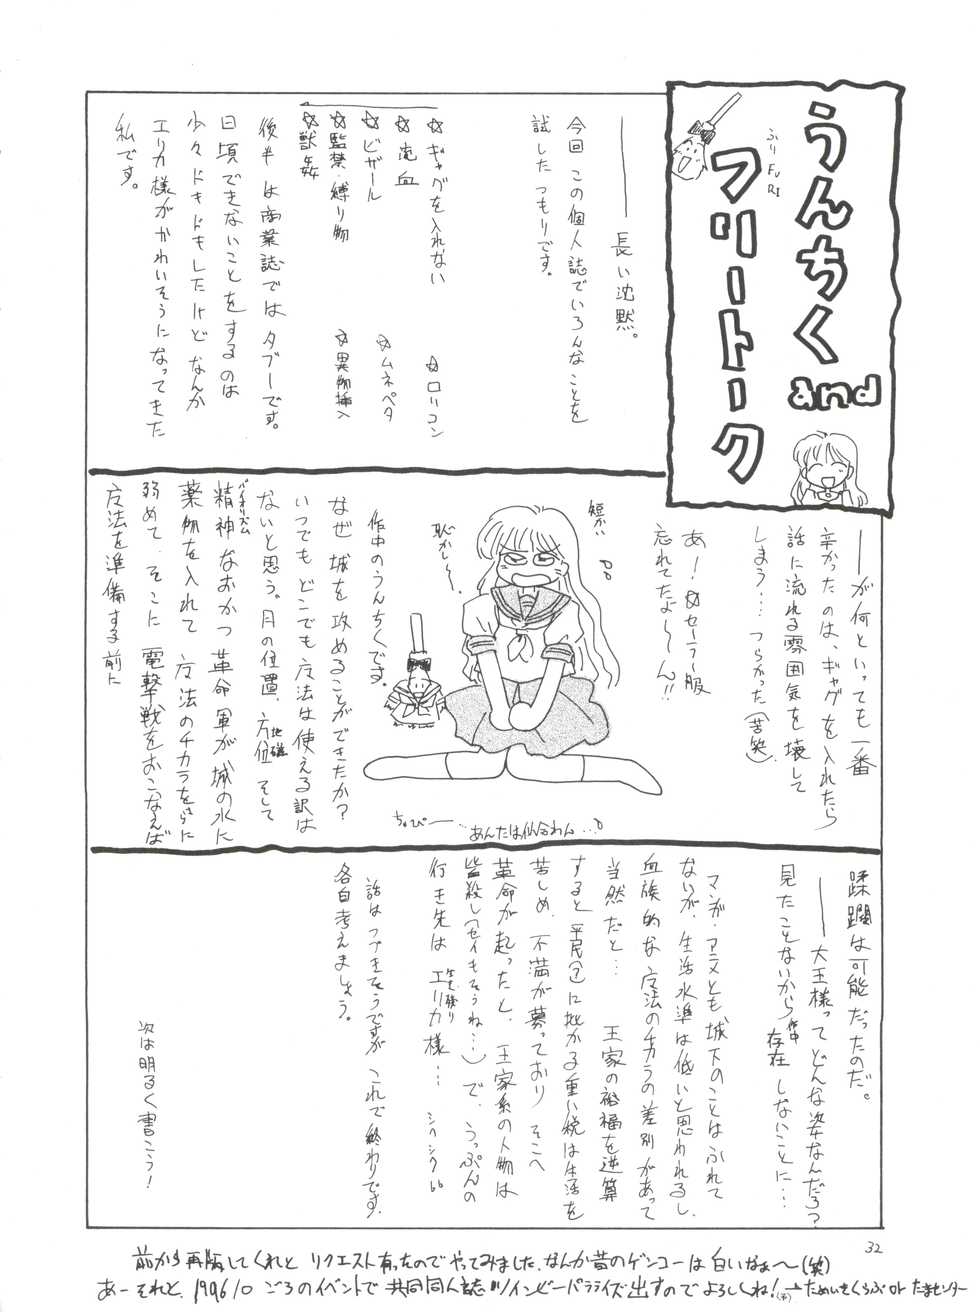 うんちく
and
フリートーク
ふり FURI
――長い沈黙。
今回この個人誌でいろんなことを
試したつもりです。
☆ギャグを入れない
☆ロリコン
☆流血
☆ムネペタ
☆ビザール
☆異物挿入
☆監禁・縛り物
☆獣姦
後半は商業誌ではタブーです。
日頃できないことをするのは
少々ドキドキしたけどなんか
エリカ様がかわいそうになってきた
私です。
――が何といっても一番
辛かったのは、ギャグを入れたら
話に流れる雰囲気を壊して
しまう…つらかった(苦笑)
あ!☆セーラー服
忘れてたよ〜〜ん!!
短かい
恥かし〜〜
ちゅぴ――
…あんたは似合わん…
作中のうんちくです。
なぜ城を攻めることができたか?
いつでもどこでも方法は使える訳は
ないと思う。月の位置、方位 地磁 そして
精神 バイオリズム なおかつ革命軍が城の水に
薬物を入れて方法のチカラをさらに
弱めて、そこに電撃戦をおこなえば
方法を準備する前に
蹂躙は可能だったのだ。
――大王様ってどんな姿なんだろ?
見たことないから作中存在しないことに…
マンガ・アニメとも城下のことはふれて
ないが、生活水準は低いと思われるし、
血族的な方法のチカラの差別があって
当然だと… 王家の裕福を逆算
すると平民(?)に掛かる重い税は生活を
苦しめ、不満が募っており そこへ
革命が起ったと、王家系の人物は
皆殺し(セイもそうね…)で、うっぷんの
行き先は 生き残り エリカ様… シクシク
話はつづきそうですが これで終わりです。
各自考えましょう。
次は明るく書こう!
32
前から再販してくれと リクエスト有ったのでやってみました。なんか昔のゲンコーは白いなぁ〜(笑)
あーそれと、1996 10 ごろのイベントで共同同人誌ツインビーパラライズ出すのでよろしくね!